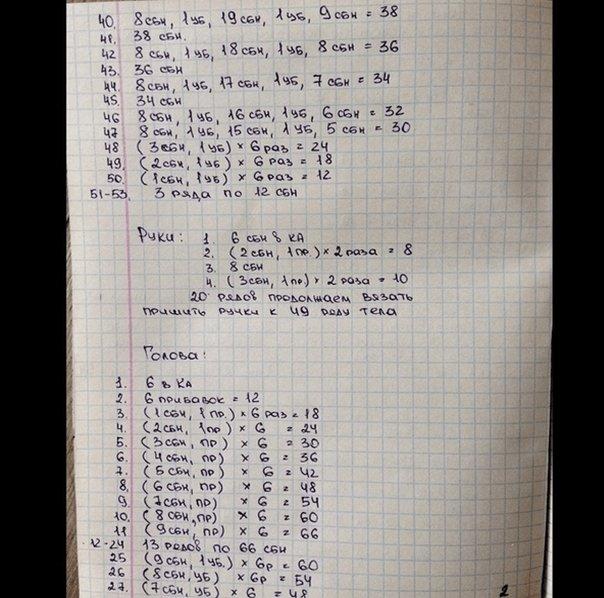 40. 8 сбн, 1 уб, 19 сбн, 1 уб, 9 сбн = 38
41. 38 сбн.
42 8 сбн, 1 уб, 18 сбн, 1 уб, 8 сбн = 36
43. 36 сбн
44. 8 сбн, 1 уб, 17 сбн, 1 уб, 7 сбн = 34
45. 34 сбн
46 8 сбн, 1 уб, 16 сбн, 1 уб, 6 сбн = 32
47 8 сбн, 1 уб, 15 сбн, 1 уб, 5 сбн = 30
48 (3 сбн, 1 уб) × 6 раз = 24
49. (2 сбн, 1 уб) × 6 раз = 18
50. (1 сбн, 1 уб) × 6 раз = 12
51-53. 3 ряда по 12 сбн
Руки: 1. 6 сбн в КА
2. (2 сбн, 1 пр.) × 2 раза = 8
3. 8 сбн
4. (3 сбн, 1 пр.) × 2 раза = 10
20 рядов продолжаем вязать
пришить ручки к 49 ряду тела
Голова:
1. 6 в КА
2. 6 прибавок = 12
3. (1 сбн, 1 пр.) × 6 раз = 18
4. (2 сбн, 1 пр) × 6 = 24
5. (3 сбн, пр) × 6 = 30
6. (4 сбн, пр) × 6 = 36
7. (5 сбн, пр) × 6 = 42
8. (6 сбн, пр) × 6 = 48
9. (7 сбн, пр) × 6 = 54
10. (8 сбн, пр) × 6 = 60
11 (9 сбн, пр) × 6 = 66
12-24 13 рядов по 66 сбн
25 (9 сбн, 1 уб.) × 6р = 60
26 (8 сбн, уб) × 6р = 54
27. (7 сбн, уб) × 6 = 48
2